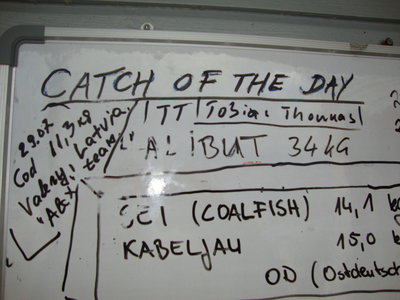 CATCH OF THE DAY
29.07
Cod 11,3 kg
Latvia
team
TT Tobias Thomas
ALIBUT 34 KG
SEI (COALFISH) 14,1 kg
KABELJAU 15,0 k
OD (Ostdeutsch